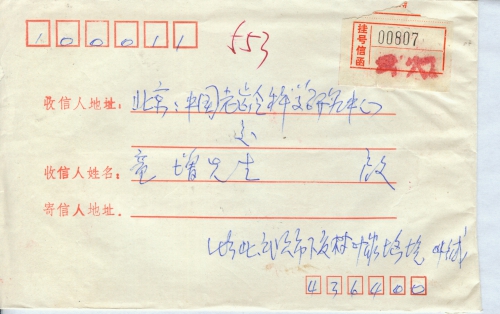 100011
553
挂号信函
00807
收信人地址：北京：中国老龄科学研究中心
交
收信人姓名：童增先生 启
寄信人地址．
湖北武穴市
436400